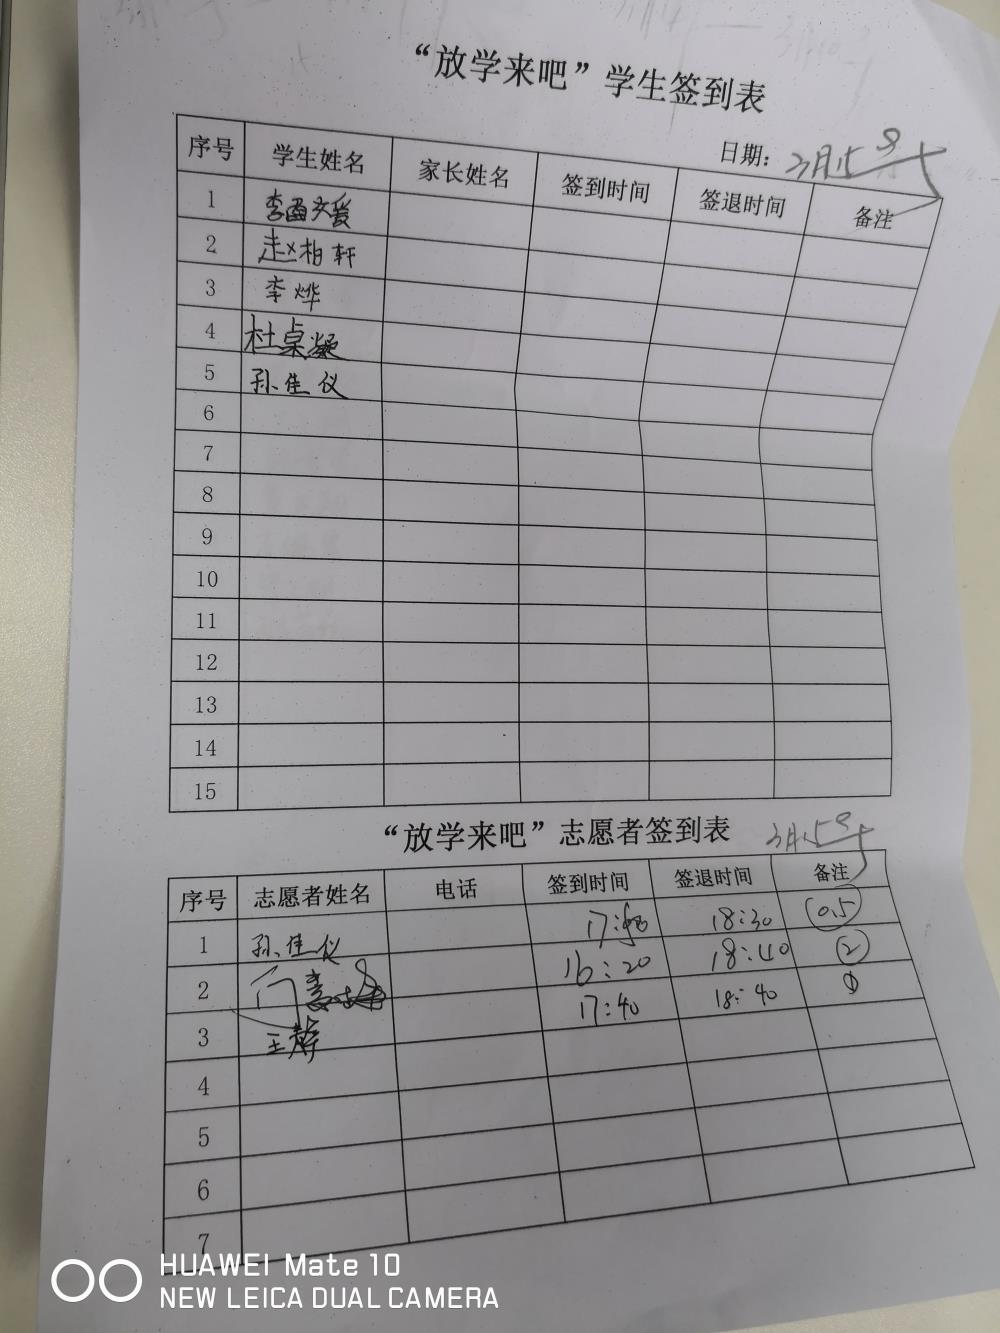 “放学来吧”学生签到表
日期：3月15号
序号 学生姓名 家长姓名 签到时间 签退时间 备注
1
2 赵柏轩
3 李烨
4 杜桌凝
5 孙佳仪
6
7
8
9
10
11
12
13
14
15
“放学来吧”志愿者签到表 3月15号
序号 志愿者姓名 电话 签到时间 签退时间 备注
1 孙佳仪 18:30 0.5
2 16:20 18:40 2
3 王静 17:40 18:40
4
5
6
7
HUAWEI Mate 10
NEW LEICA DUAL CAMERA